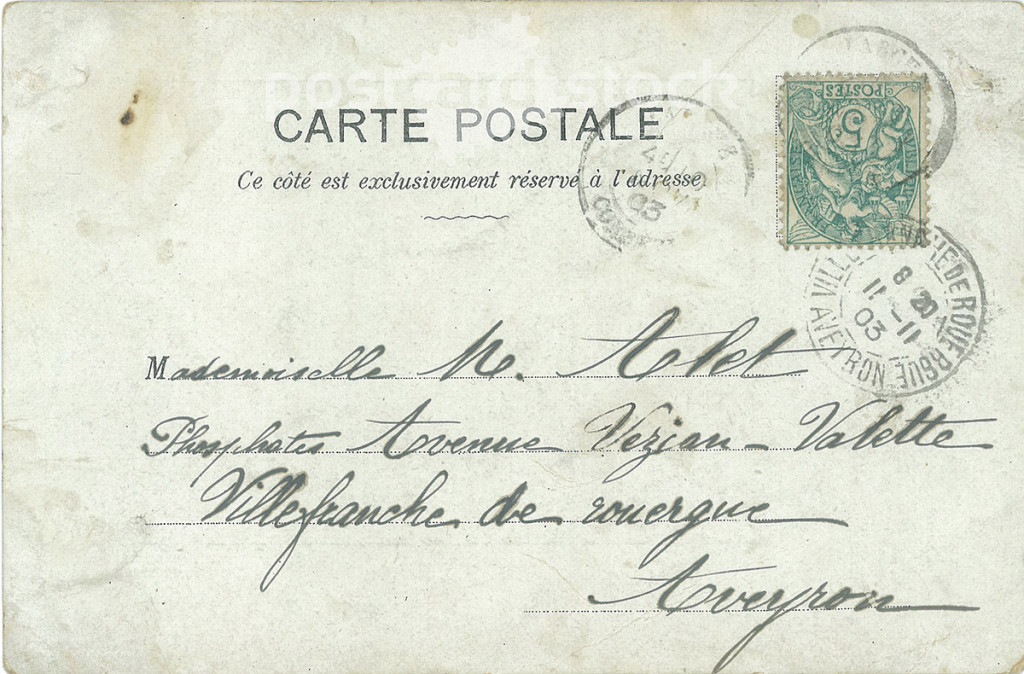 postcard stock
CARTE POSTALE
Ce côté est exclusivement réservé à l'adresse
POSTES
5
03
VILLEFRANCHE DE ROUERGUE
8 20
11 - 11
03
AVEYRON
Mademoiselle M. Alet
Phosphates Avenue Vezian-Valette
Villefranche de rouergue
Aveyron